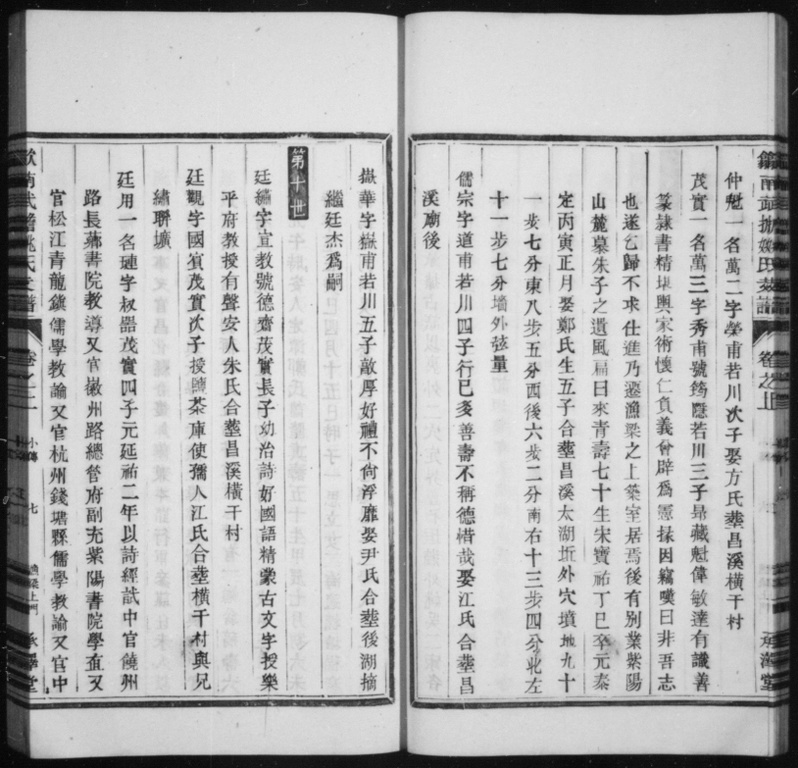 仲魁一名萬二字榮甫若川次子娶方氏葬昌溪橫干村
茂實一名萬三字秀甫號筠隱若川三子昻藏魁偉敏達有議善
篆隸書精堪輿家術懷仁負義曾辟爲憲掾因竊嘆曰非吾志
也遂乞歸不求仕進乃遷漁梁之上築室居焉後有别業紫陽
山麓慕朱子之遺風扁曰來青壽七十生宋寶祐丁巳卒元泰
定丙寅正月娶鄭氏生五子合葬昌溪太湖坵外穴墳地九十
一步七分東八步五分西後六步二分南右十三步四分北左
十一步七分墻外弦量
儒宗字道甫若川四子行已多善壽不稱德惜哉娶江氏合葬昌
溪廟後
嶽華字嶽甫若川五子敵厚好禮不尙浮靡娶尹氏合葬後湖摛
繼廷杰爲嗣
第十世
廷繡字宣教號德齋茂實長子幼治詩好國語精蒙古文字授樂
平府教授有聲安人朱氏合葬昌溪橫干村
廷觀字國賓茂實次子授鹽茶庫使孺人江氏合葬橫干村與兄
繡聯壙
廷用一名璉字叔器茂實四子元延祐二年以詩經試中官饒州
路長薌書院教導又官徽州路總管府副充紫陽書院學直又
官松江青龍鎭儒學教諭又官杭州錢塘縣儒學教諭又官中
卷之二
小傳
七
漁梁上門
承澤堂